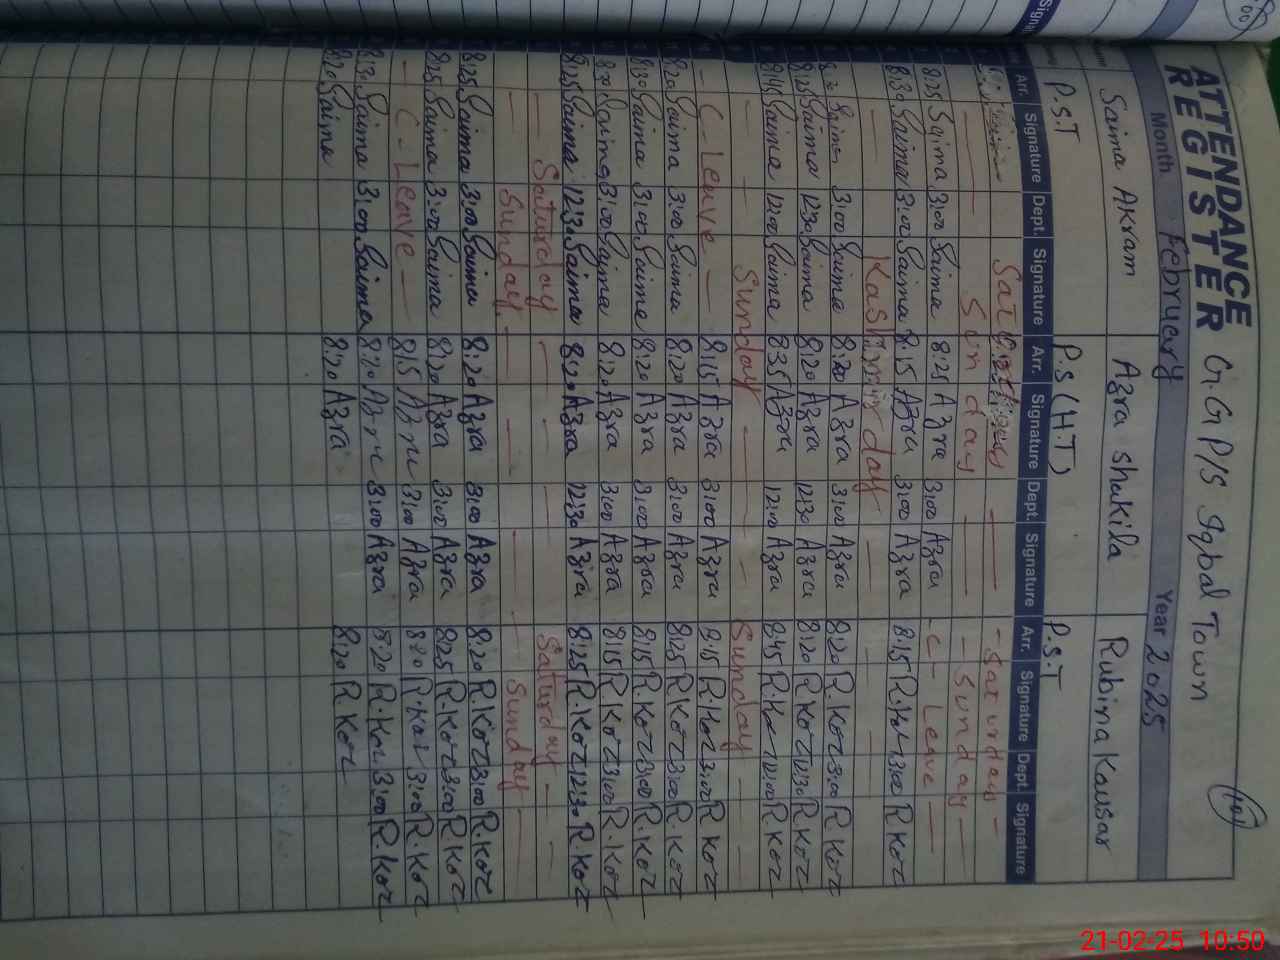 ATTENDANCE REGISTER G.G P/S Iqbal Town
Month February Year 2025
Saima Akram Azra shakila Rubina Kausar
P.S.T P.S(H.T) P.S.T
Arr. Signature Dept. Signature Arr. Signature Dept. Signature Arr. Signature Dept. Signature
Saturday
Sunday Sunday
8:25 Saima 3:00 Saima 8:25 Azra 3:00 Azra - C - Leave -
8:30 Saima 3:00 Saima 8:15 Azra 3:00 Azra 8:15 R.Kor 3:00 R Kor
Kashmir day
Saima 3:00 Saima 8:20 Azra 3:00 Azra 8:20 R.Kor 3:00 R Kor
8:25 Saima 12:30 Saima 8:20 Azra 12:30 Azra 8:20 R Kor 12:30 R Kor
8:45 Saima 12:00 Saima 8:35 Azra 12:00 Azra 8:45 R.Kor 12:00 R Kor
Sunday Sunday
- C - Leave - 8:15 Azra 3:00 Azra 8:15 R.Kor 3:00 R Kor
8:20 Saima 3:00 Saima 8:20 Azra 3:00 Azra 8:25 R Kor 3:00 R Kor
8:30 Saima 3:00 Saima 8:20 Azra 3:00 Azra 8:15 R.Kor 3:00 R.Kor
8:20 Saima 3:00 Saima 8:20 Azra 3:00 Azra 8:15 R Kor 3:00 R.Kor
8:25 Saima 12:30 Saima 8:20 Azra 12:30 Azra 8:25 R.Kor 12:30 R.Kor
Saturday Saturday
Sunday Sunday
8:25 Saima 3:00 Saima 8:20 Azra 3:00 Azra 8:20 R.Kor 3:00 R.Kor
8:25 Saima 3:00 Saima 8:20 Azra 3:00 Azra 8:25 R.Kor 3:00 R Kor
- C - Leave - 8:15 Azra 3:00 Azra 8:20 R.Kor 3:00 R.Kor
Saima 3:00 Saima 8:20 Azra 3:00 Azra 8:20 R.Kor 3:00 R.Kor
8:20 Saima 8:20 Azra 8:20 R.Kor
21-02-25 10:50